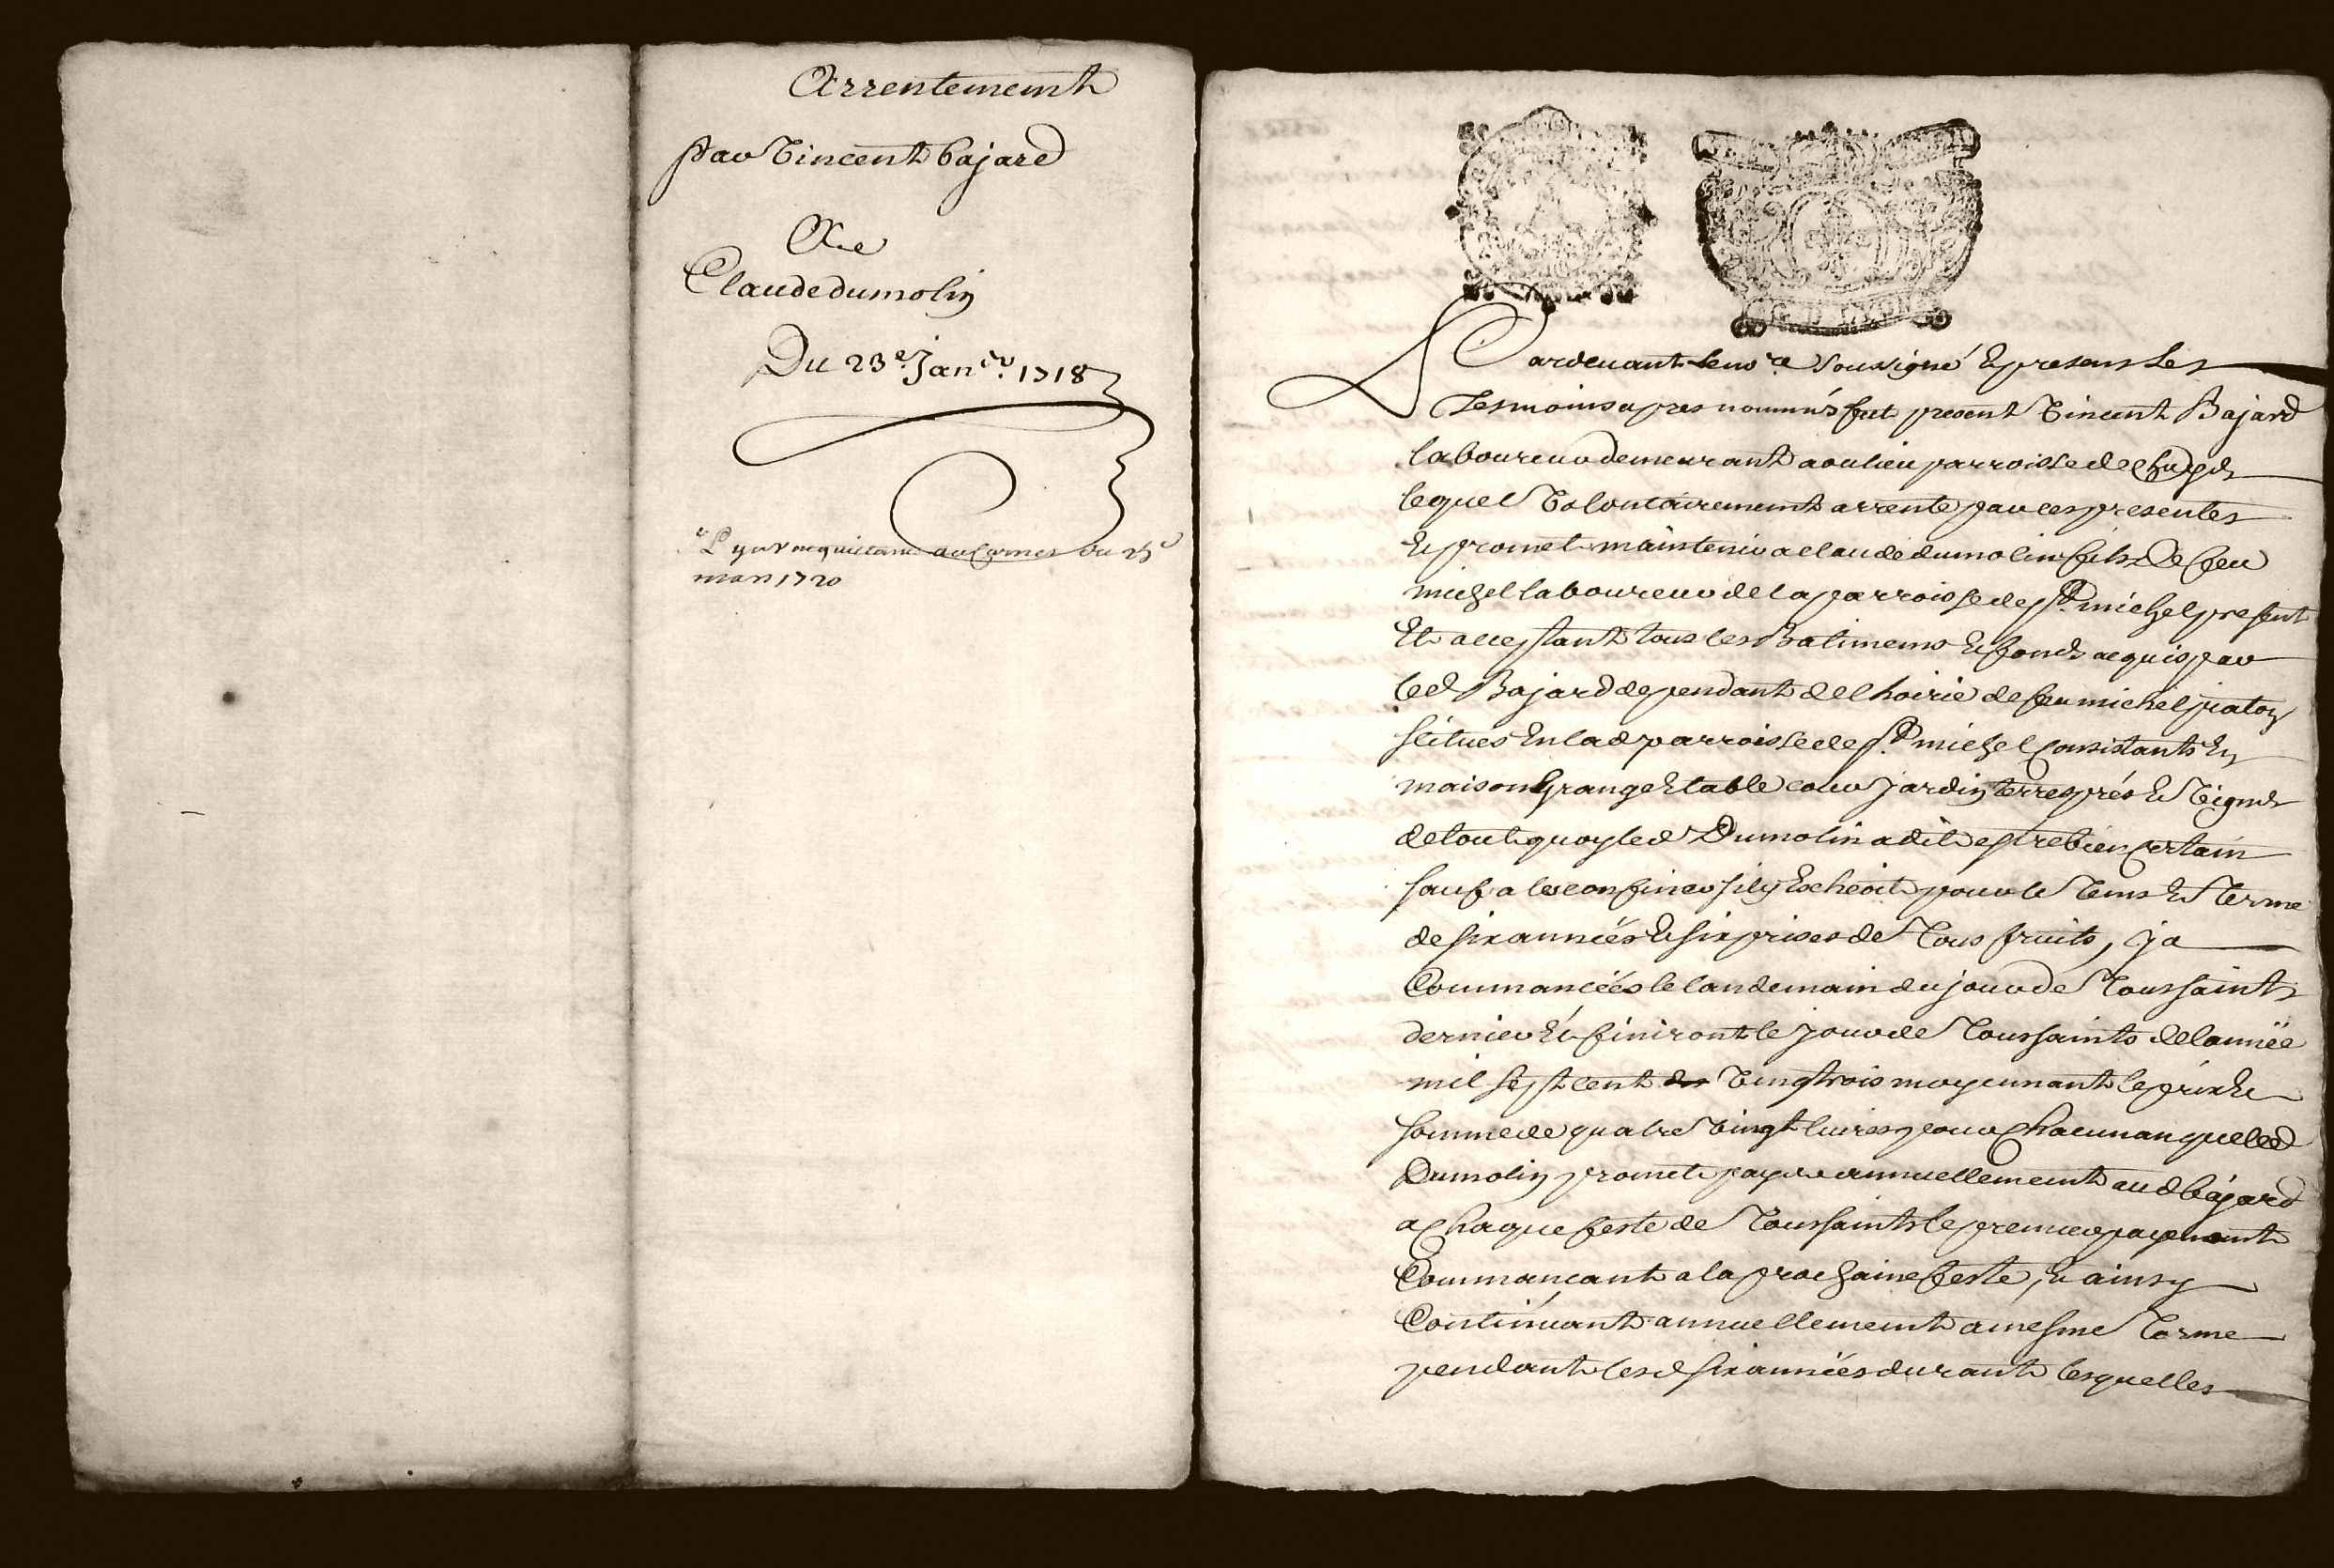 Arrentement
par Vincent bajard
A
Claude dumolin
Du 23e. Janer. 1718
Il y a acquittant du 25e
mars 1720
Pardevant le nore soussigné & presens les
Tesmoins apres nommés fut present Vincent Bajard
laboureur demeurant au lieu parroisse de
lequel Volontairement arrente par ces presentes
& promet maintenir a claude dumolin fils de feu
michel laboureur de la parroisse de St. michel present
Et acceptant tous les Batimens & fonds acquis par
led Bajard dependant de lhoirie de feu michel
scitués En lad parroisse de St. michel Consistants En
maison Grange Etable cour Jardin terres prés & Vignes
de tout quoy led Dumolin a dit estre bien certain
sauf a les confiner sily Echeoit pour le Tems & Terme
de six années & six prises de Tous fruits, ja
Commancées le landemain du jour de Toussaints
dernier & finiront le jour de Toussaints de lannée
mil sept cent Vingtrois moyennant le prix &
somme de quatre Vingt livres pour Chacun an que led
Dumolin promet payer annuellement aud bajard
a Chaque feste de Toussaints le premier payement
Commançant a la prochaine feste, & ainsy
Continuant annuellement a mesme Terme
pendant lesd six années durant lesquelles